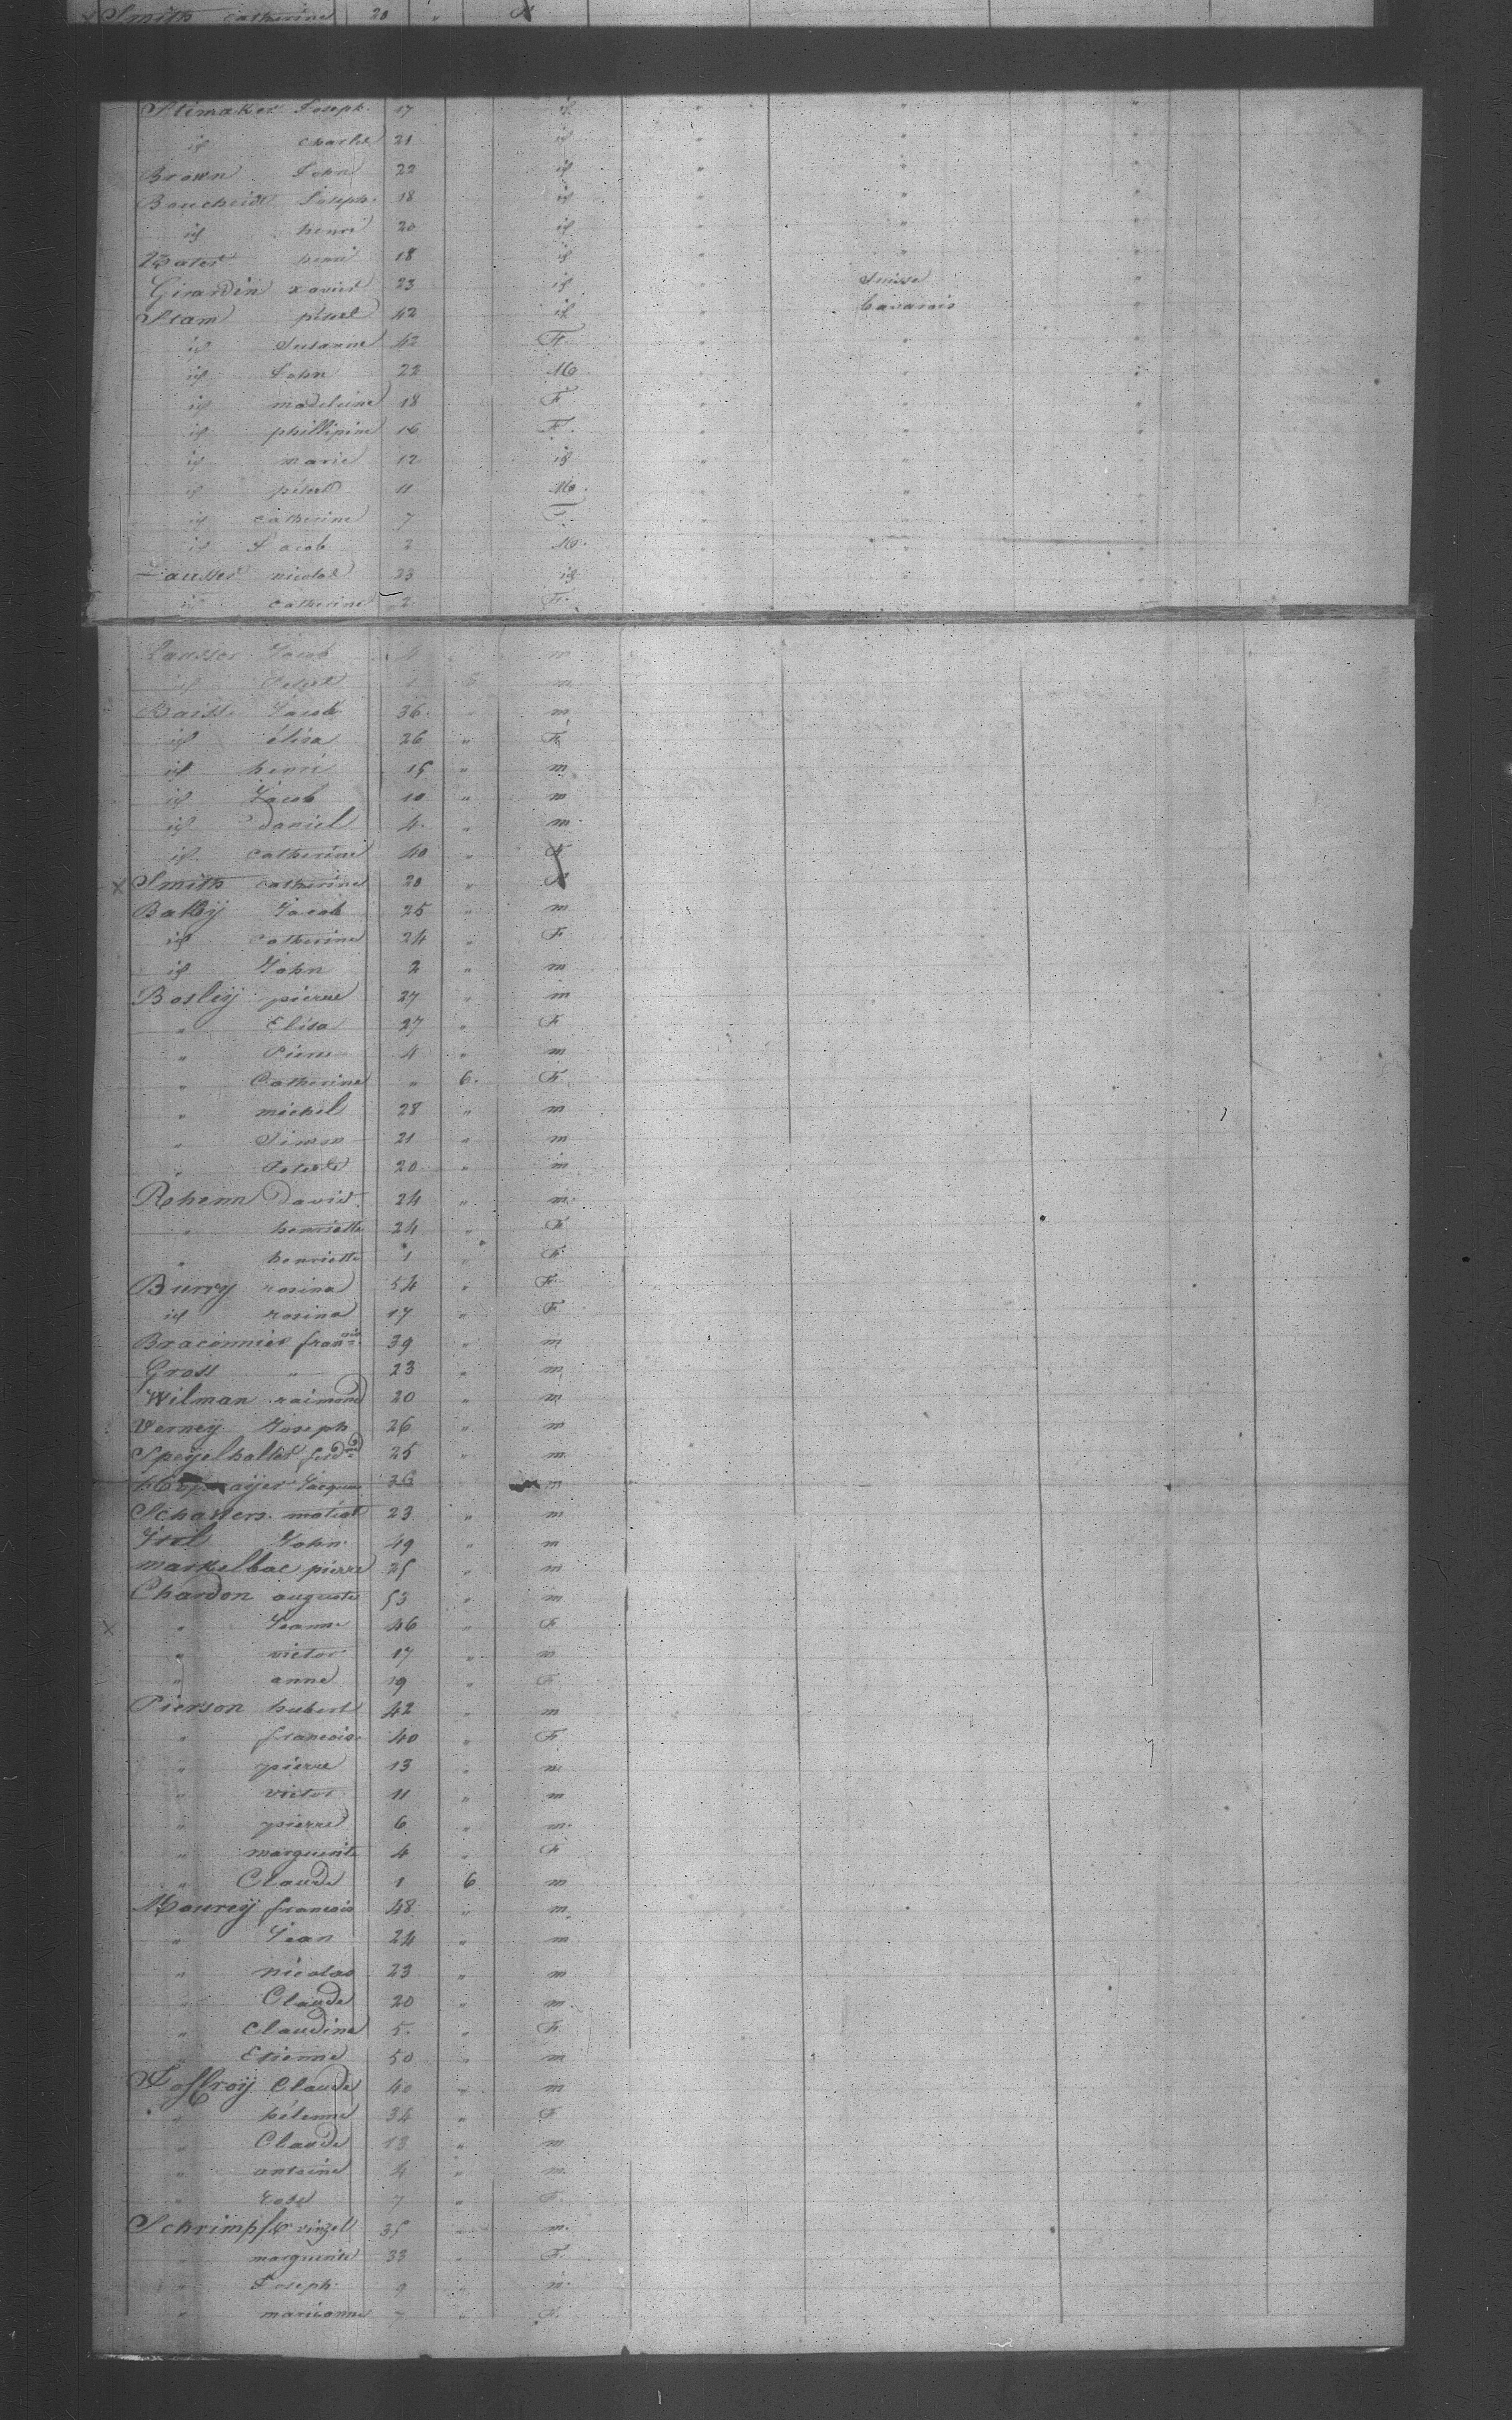 Smith catherine 20 "
Stimaker Joseph. 17 id " " "
id charles 21 id "
Brown John 22 id " " "
Joseph. 18 id " "
id henri 20 id " " "
henri 18 id " " "
Girardin xavier 23 id " Suisse "
Stam péter 42 id " bavarois "
id Susanne 42 F. " " "
id John 22 M. " "
id madeleine 18 F " " "
id phillipine 16 F. " " "
id marie 12 id " " "
id péter 11 M. " "
id catherine 7 F. " "
id Jacob M. " "
nicolas 23 id "
id catherine 2 F.
Lausser Jacob 4 m
id m
Jacob 36. " m
id élisa 26 " F
id henri 15 " m
id Jacob 10 " m
id daniel 4. " m.
id catherine 40 " F
x Smith catherine 20 "
Jacob 25 " m
id catherine 24 " F
id John 2 " m
Bosley pierre 27 " m
" Elisa 27 " F
" Pierre 4 " m
" Catherine " 6. F
" michel 28 " m
" Simon 21 " m
" 20 " m
Rohenn David. 24 " m.
" henriette 24 " F
" henriette 1 " F.
Burry rosina 54 " F.
id rosina 17 " F
Braconnier 39 " m
Gross " 23 " m
Wilman raimond 20 " m
Verney Joseph 26 " m
25 " m
Jacques 26 m
23 " m
John 49 " m
markelbac pierre 25 " m
Chardon auguste 53 " m
x " Jeanne 46 " F
" victor 17 " m
" anne 19 " F
Pierson hubert 42 " m
" francoise 40 " F
" pierre 13 " m
" victor 11 " m
" pierre 6 " m.
" marguerite 4 " F
" Claude 1 6 m
Mourey francois 48 " m.
" Jean 24 " m
" nicolas 23 " m
" Claude 20 " m.
" Claudine 5. " F.
" Etienne 50 " m
Joffroy Claude 40 " m
" hélenne 34 " F
" Claude 13 " m
" antoine 4 " m.
" Rose 7 " F.
35 " m.
" marguerite 33 " F.
" Joseph. 9 " m.
" marianne 7 " F.